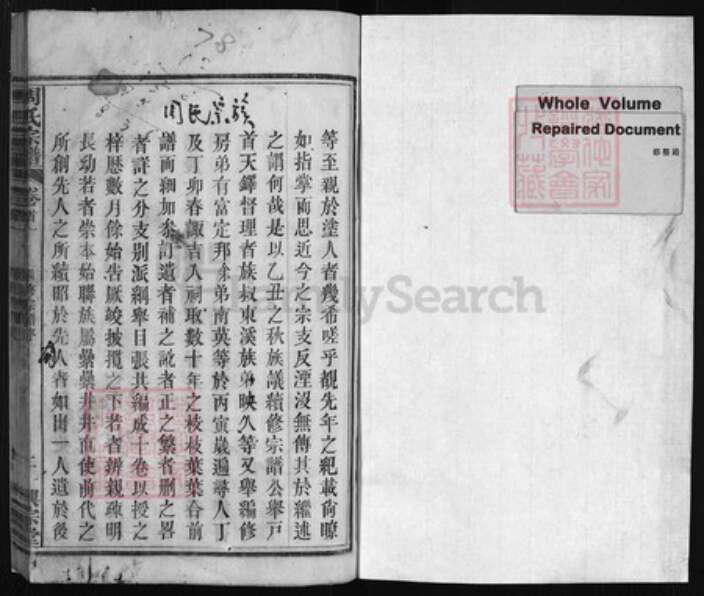 78
周氏宗族
等至親於塗人者幾希嗟乎覩先年之紀載尙瞭
如指掌而思近今之宗支反湮沒無傳其於繼述
之謂何哉是以乙丑之秋族議續修宗譜公舉戸
首天鐸督理者族叔東溪族弟映久等又舉編修
房弟有富定邦弟南英等於丙寅歲遍尋人丁
及丁卯春諏吉入祠取數十年之枝枝葉葉合前
譜而細加參訂遺者補之訛者正之繁者刪之畧
者詳之分支别派綱舉目張其編成十卷以授之
梓歷數月餘始告厥竣披攬之下若者辨親疎明
長幼若者崇本始聯族屬纍纍井井直使前代之
所創先人之所績昭於先人者如出一人遺於後
周氏宗譜
卷首
Whole Volume
Repaired Document
FamilySearch